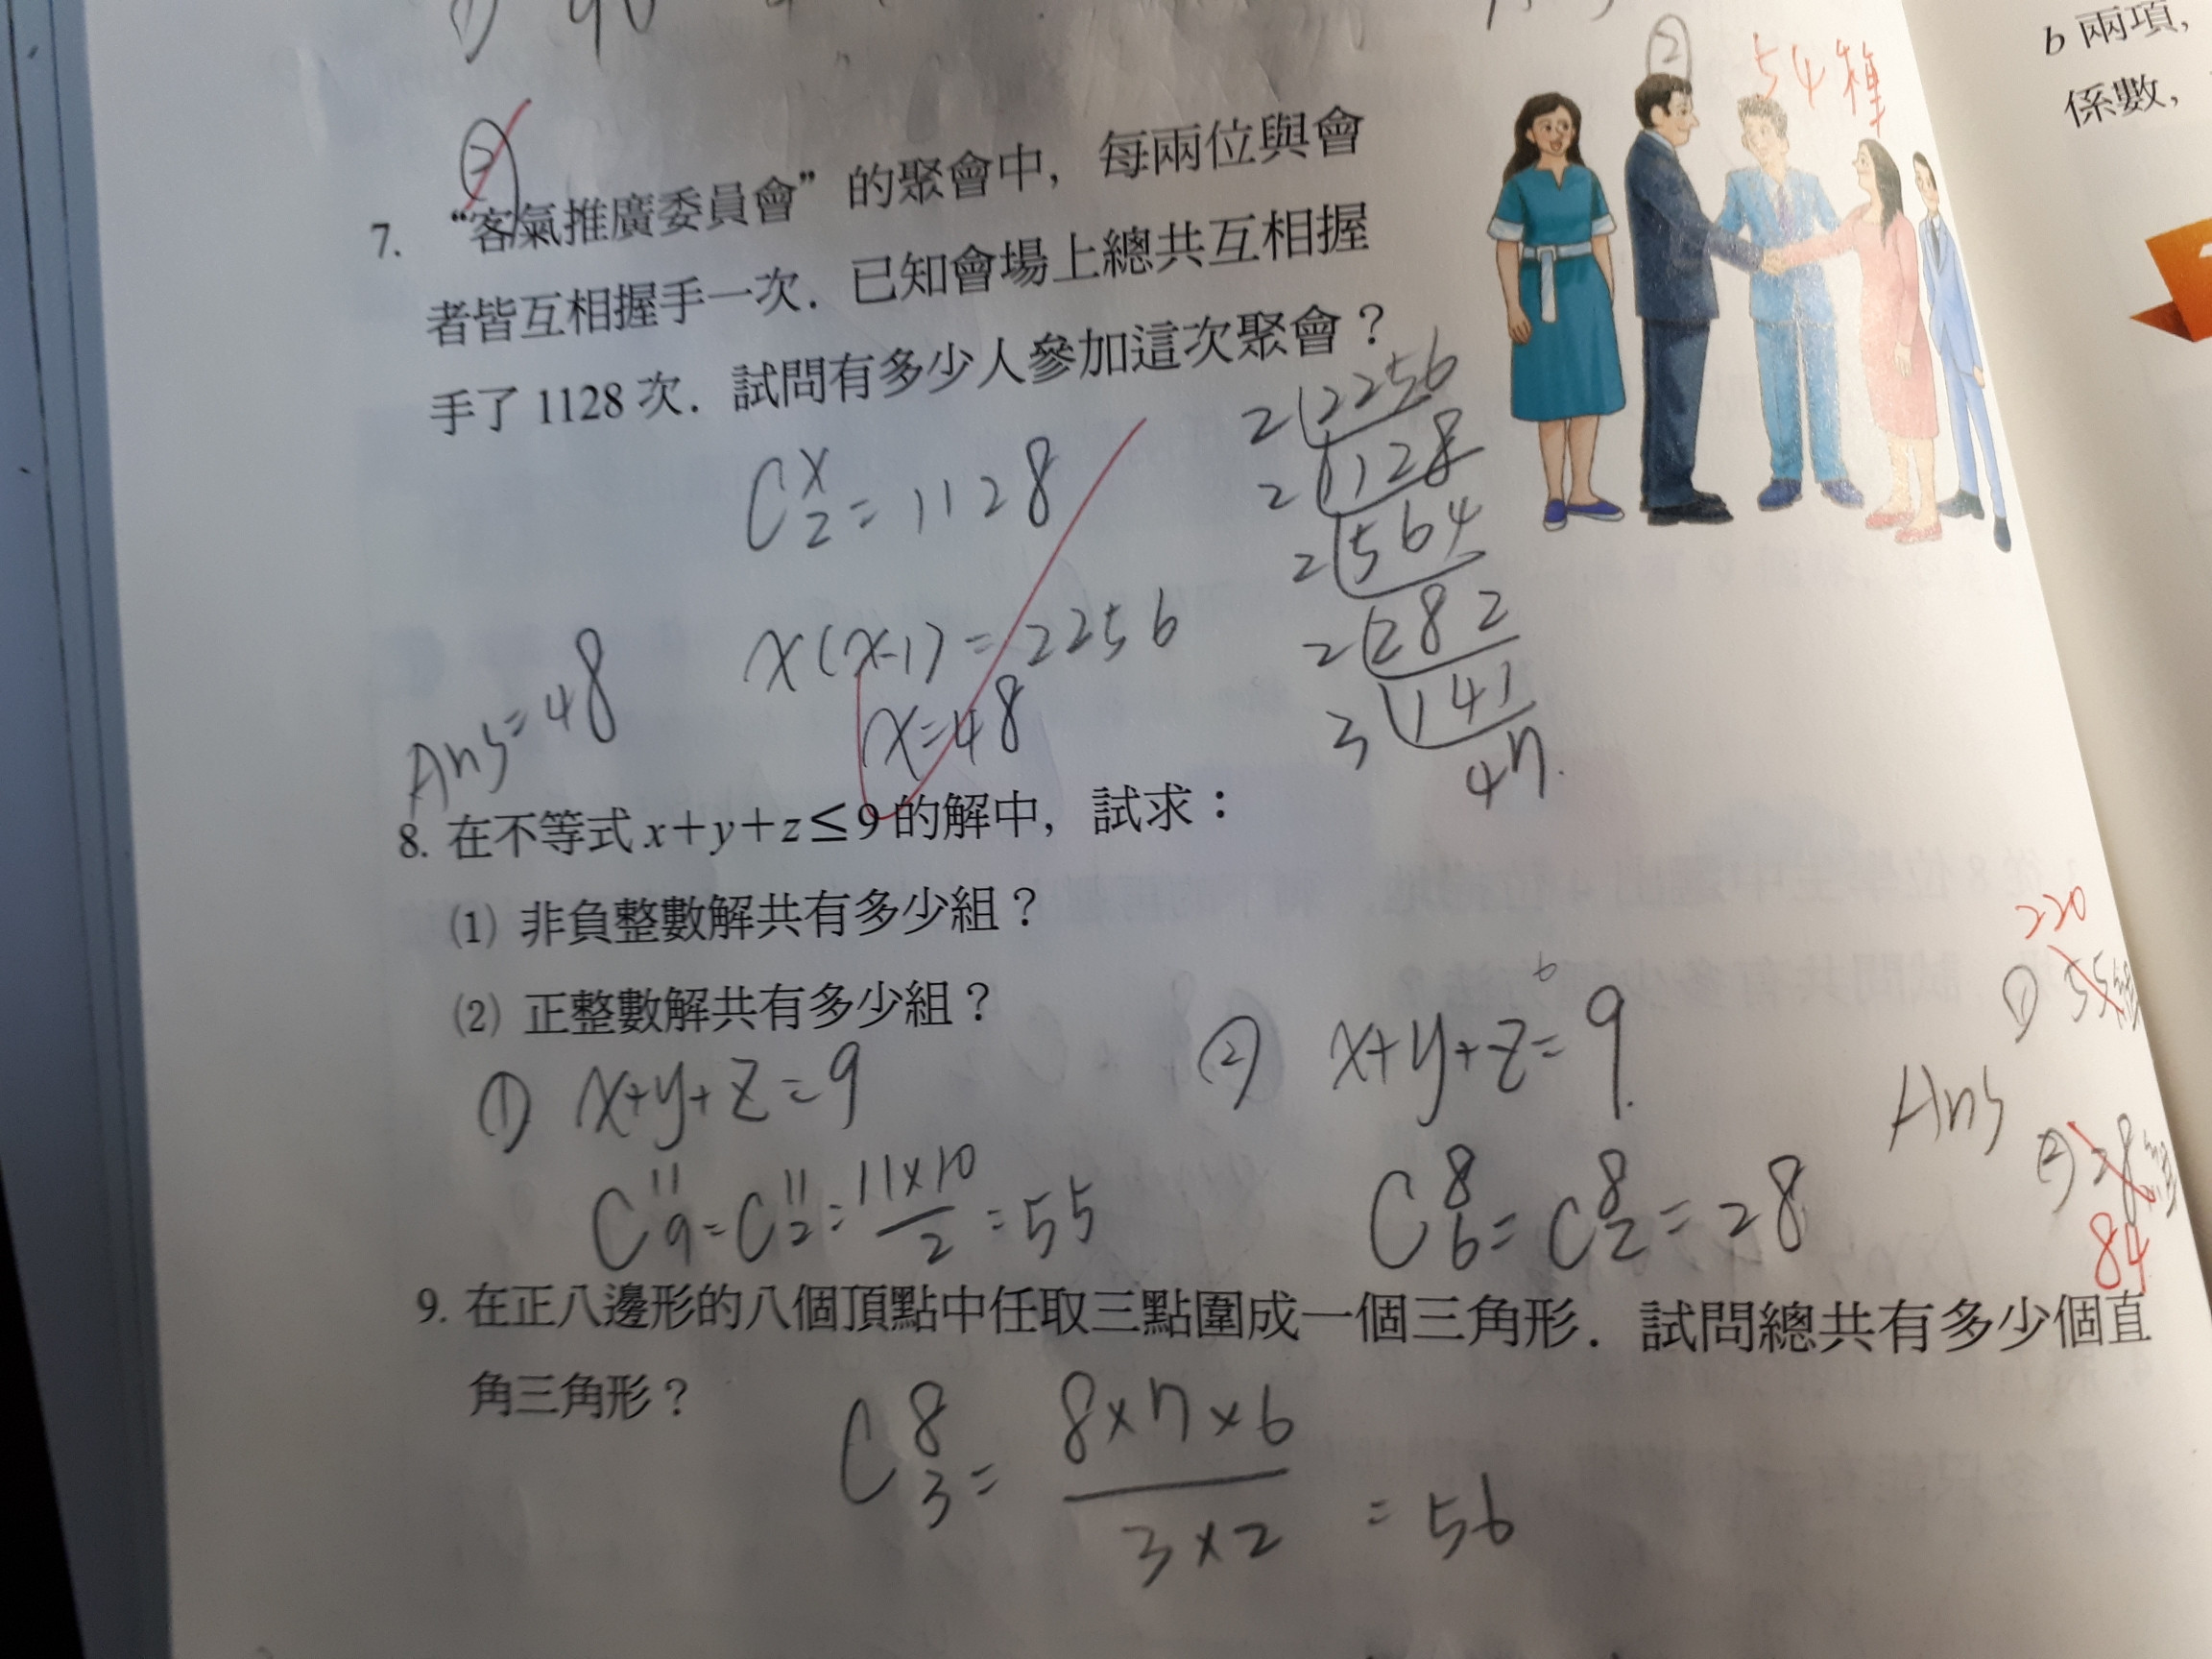 b 兩項,
係數,
②
② 54種
7. “客氣推廣委員會”的聚會中, 每兩位與會
者皆互相握手一次. 已知會場上總共互相握
手了 1128 次. 試問有多少人參加這次聚會?
C x 2 = 1128
x(x-1) = 2256
x=48
Ans=48
2 2256
2 1128
2 564
2 282
3 141
47.
8. 在不等式 x+y+z≤9 的解中, 試求:
(1) 非負整數解共有多少組?
(2) 正整數解共有多少組?
① x+y+z=9
C 11 9 = C 11 2 = 11×10 / 2 = 55
② x+y+z=9.
6
C 8 6 = C 8 2 = 28
Ans
220
① 55組
② 28組
84
9. 在正八邊形的八個頂點中任取三點圍成一個三角形. 試問總共有多少個直
角三角形?
C 8 3 = 8×7×6 / 3×2 = 56